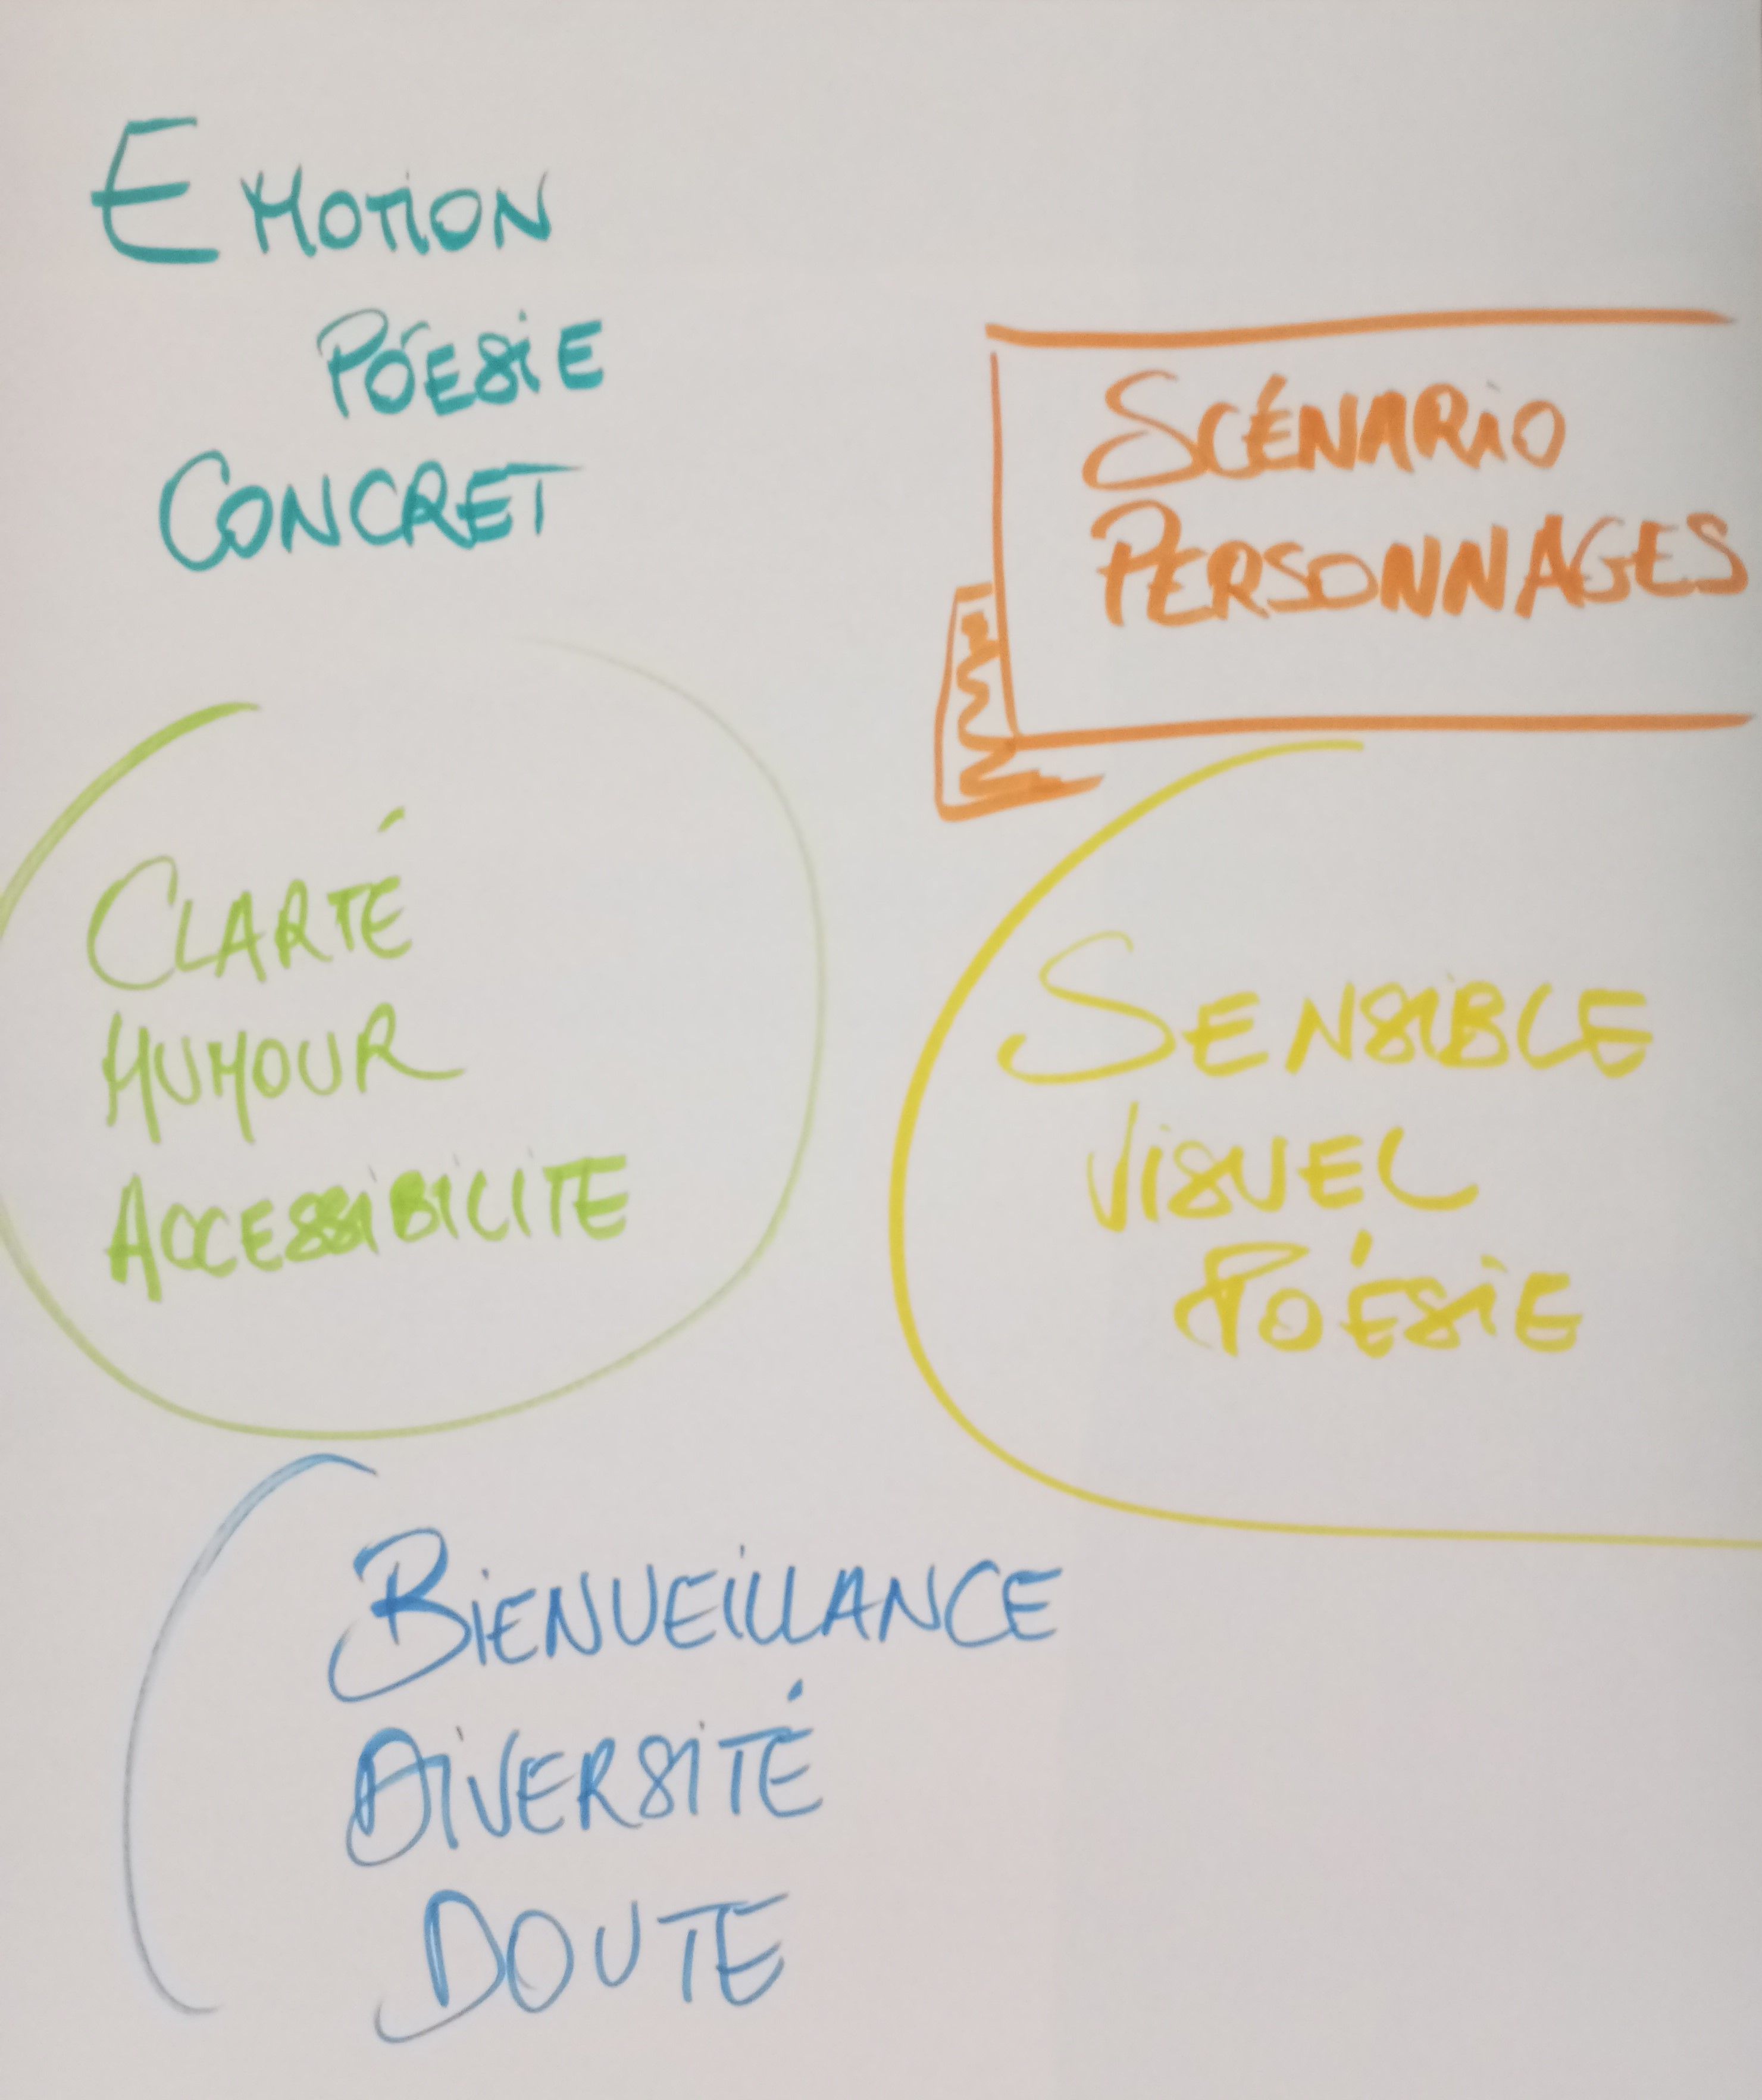 EMOTION
POÉSIE
CONCRET
SCÉNARIO
PERSONNAGES
CLARTÉ
HUMOUR
ACCESSIBILITE
SENSIBLE
VISUEL
POÉSIE
BIENVEILLANCE
DIVERSITÉ
DOUTE